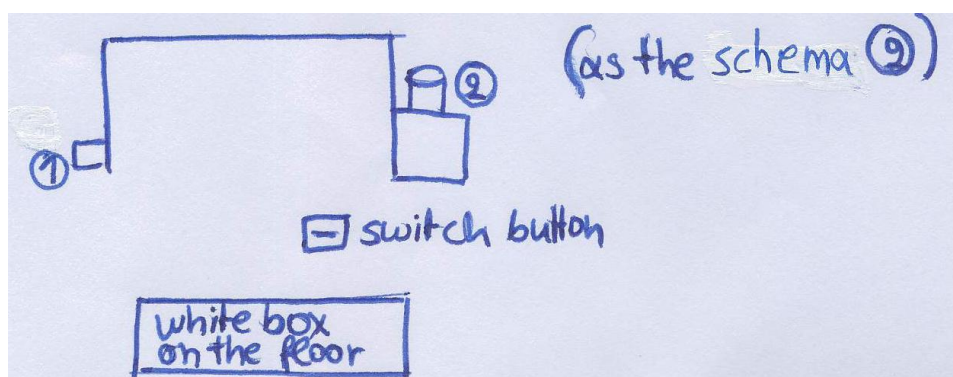 (as the schema ⑨)
②
①
switch button
white box
on the floor